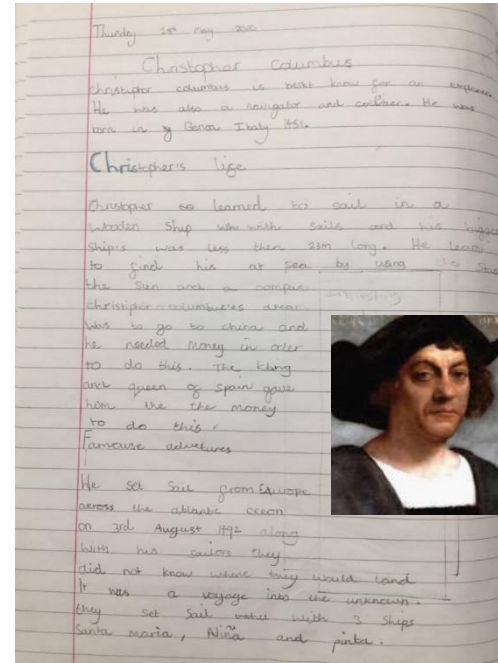 Thursday 28th may 2020
Christophar Columbus
christiphor columbus is best know for an
He was also a navigator and coloniser. He was
born in Genoa Itbaly 1451.
Christopher's lige
Christopher learned to sail in a
wooden Ship with Sails and his
Ship's was less then 21m long. He
to gind his at sea by using the
the Sun and a compus
christiphor columbuses dream
was to go to china and
he needed money in oder
to do this. The King
and queen og Spain gave
him the the money
to do this.
Famouse
He set Sail grom Eaurope
across the atlantic ocean
on 3rd August 1492 along
With his sailors they
did not know where they would land
It was a voyage into the unknown.
they set Sail with 3 Ships
Santa maria, Niña and pinta.